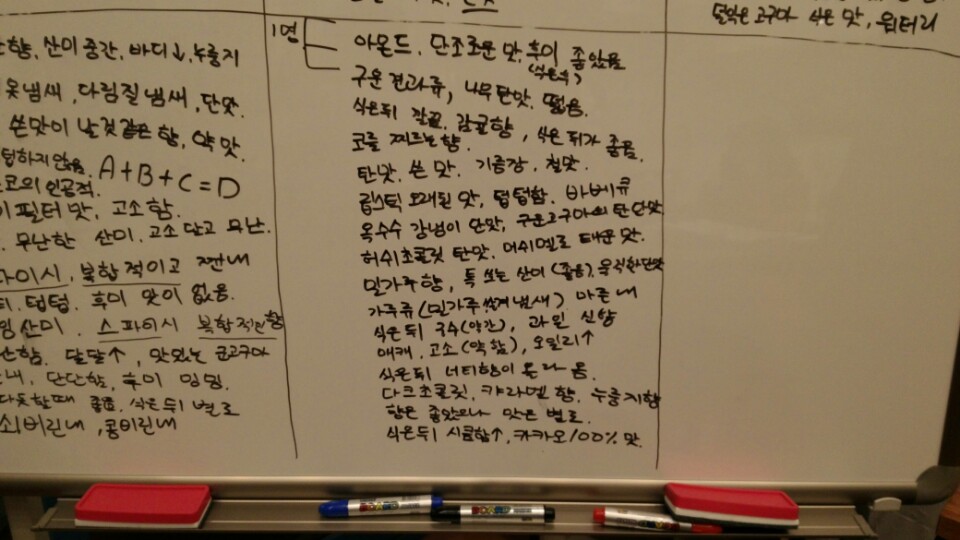 덜익은 고구마 식은 맛, 워터리
산미 중간, 바디↓, 누룽지
냄새, 다림질 냄새, 단맛.
쓴맛이 날것 같은 향, 약 맛.
텁하지 않음. A+B+C=D
인공적.
필터 맛, 고소함.
무난한 산미. 고소 달고 무난.
복합적이고 짠내
텁텁. 후미 맛이 없음.
산미. 스파이시 복합적인 향
달달↑, 맛있는 군고구마
단단함, 후미 밍밍.
따뜻할때 좋음. 식은 뒤 별로
쇠비린내, 콩비린내
1면
아몬드, 단조로운 맛, 후미 좋았음
(식은후)
구운 견과류, 나무 탄맛, 떫음.
식은뒤 감귤향, 식은 뒤가 좋음.
코를 찌르는 향.
탄맛. 쓴 맛. 기름장, 철맛.
립스틱 오래된 맛, 텁텁함. 바베큐
옥수수 강냉이 단맛, 구운고구마의 탄 단맛
허쉬초콜릿 탄맛. 머쉬멜로 태운 맛.
밀가루향, 톡 쏘는 산미 (좋음), 묵직한 단맛
가죽류 (밀가루 냄새) 마른 내
식은 뒤 국수(약간), 과일 신향
매캐, 고소(약함), 오일리↑
식은뒤 너티향이 올라옴.
다크초콜릿, 캬라멜 향. 누룽지향
향은 좋았으나 맛은 별로.
식은뒤 시큼함↑, 카카오 100% 맛.